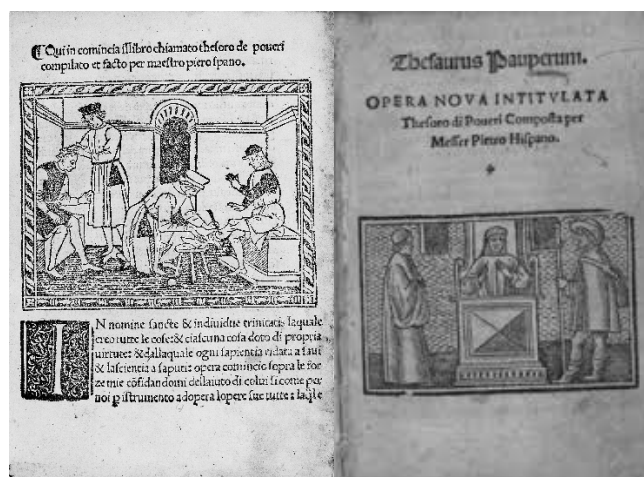 ¶ Qui in comincia illibro chiamato thesoro de poueri
compilato et facto per maestro piero spano.
IN nomine sancte & indiuidue trinitatis laquale
creo tutte le cose: & ciascuna cosa doto di propria
uirtute: & dallaquale ogni sapientia e data a saui
& la scientia a sapuri: opera comincio sopra le for
ze mie cōfidandomi dellaiuto di colui si come per
noi p istrumento adopera lopere sue tutte: laq̄le
Thesaurus Pauperum.
OPERA NOVA INTITVLATA
Thesoro di Poueri Composta per
Messer Pietro Hispano.